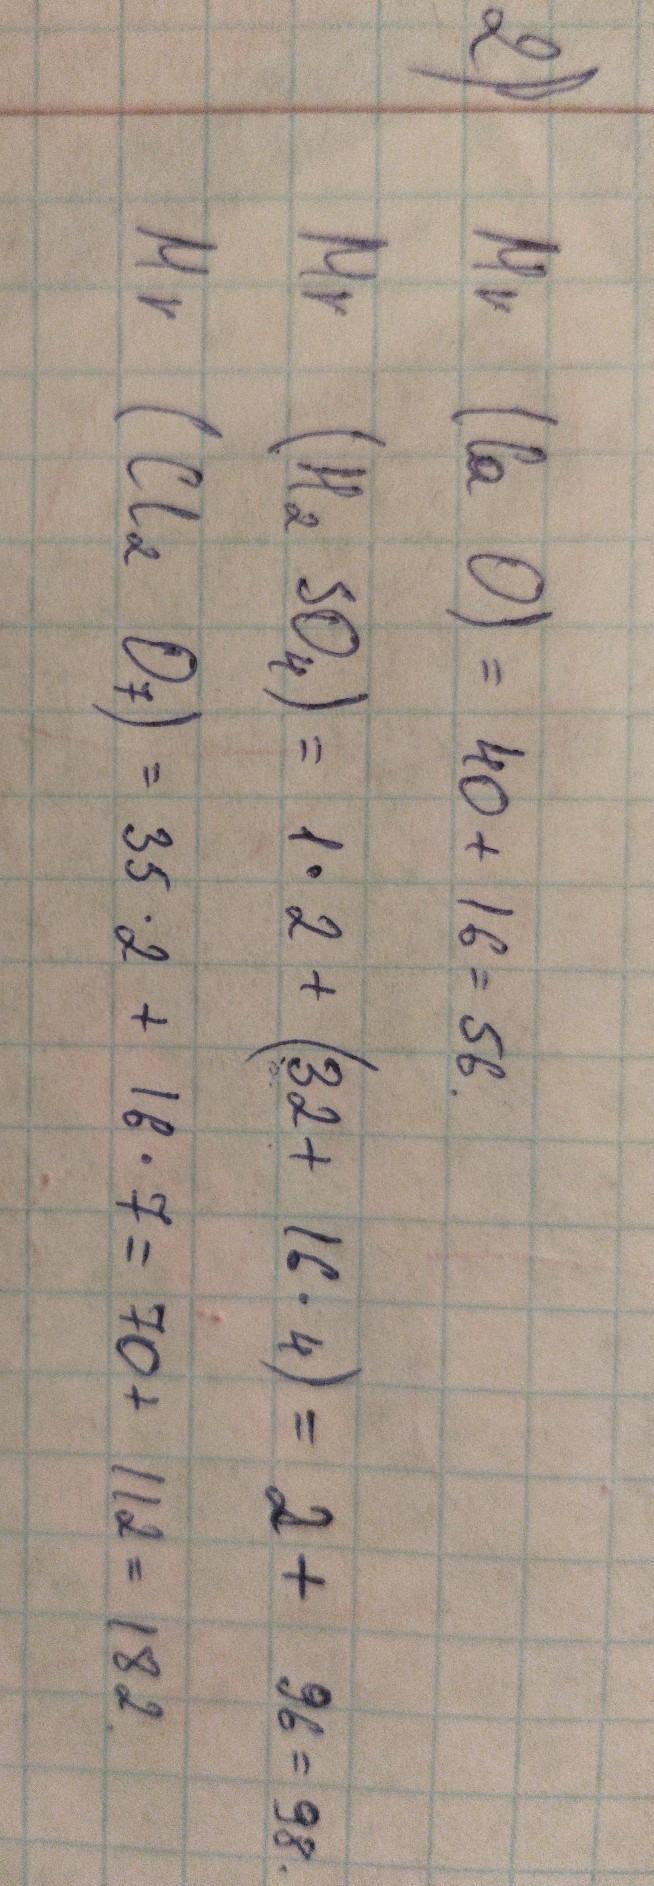 2)
Mr (Ca O) = 40 + 16 = 56.
Mr (H₂ SO₄) = 1 · 2 + (32 + 16 · 4) = 2 + 96 = 98.
Mr (Cl₂ O₇) = 35 · 2 + 16 · 7 = 70 + 112 = 182.